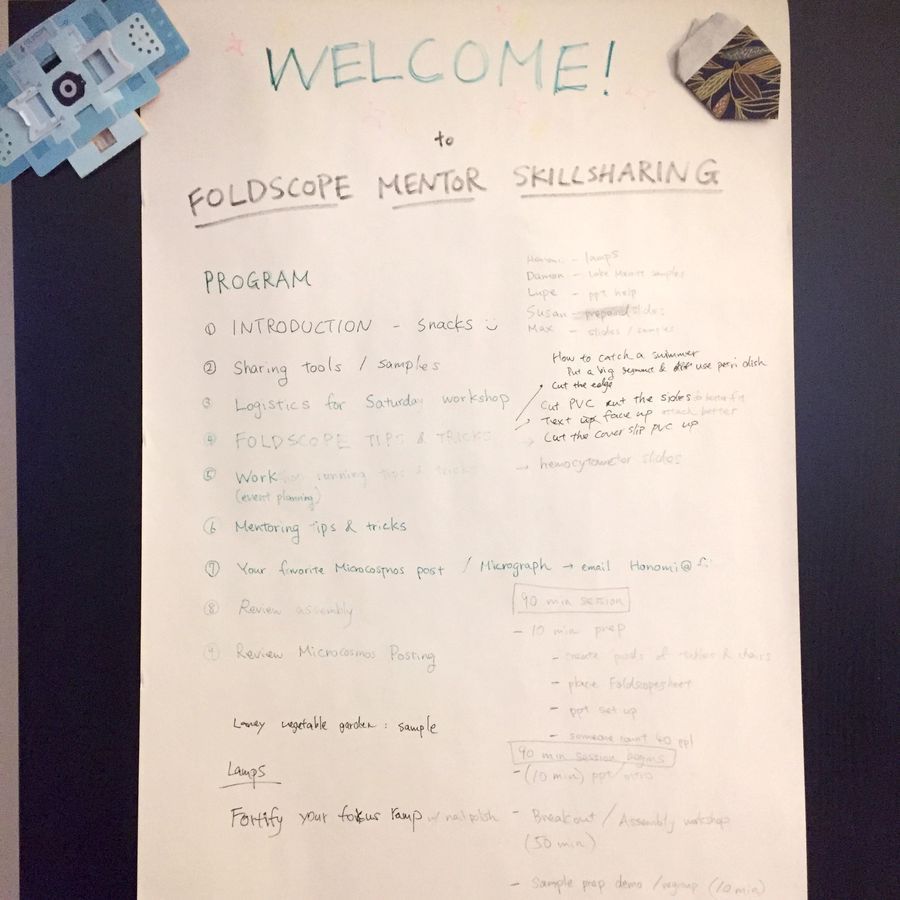 WELCOME!
to
FOLDSCOPE MENTOR SKILLSHARING
PROGRAM
① INTRODUCTION - Snacks
② Sharing tools / samples
③ Logistics for Saturday workshop
④ FOLDSCOPE TIPS & TRICKS
⑤ Work running tips & tricks
(event planning)
⑥ Mentoring tips & tricks
⑦ Your favorite Microcosmos post / Micrograph → email Honomi@
⑧ Review assembly
⑨ Review Microcosmos Posting
Laney vegetable garden : sample
Lamps
Fortify your fokus ramp w/ nail polish
Honomi - lamps
Damon - Lake Merritt samples
Lupe - ppt help
Susan - prepared slides
Max - slides / samples
How to catch a swimmer
Put a big segment & use petri dish
Cut the edge
Cut PVC cut the sides
Text face up attach better
Cut the cover slip PVC up
→ hemocytometer slides
90 min session
- 10 min prep
- create pods of tables & chairs
- place Foldscope sheet
- ppt set up
- someone count 40 ppl
90 min session begins
- (10 min) ppt intro
- Breakout / Assembly workshop
(50 min)
- Sample prep demo / regroup (10 min)